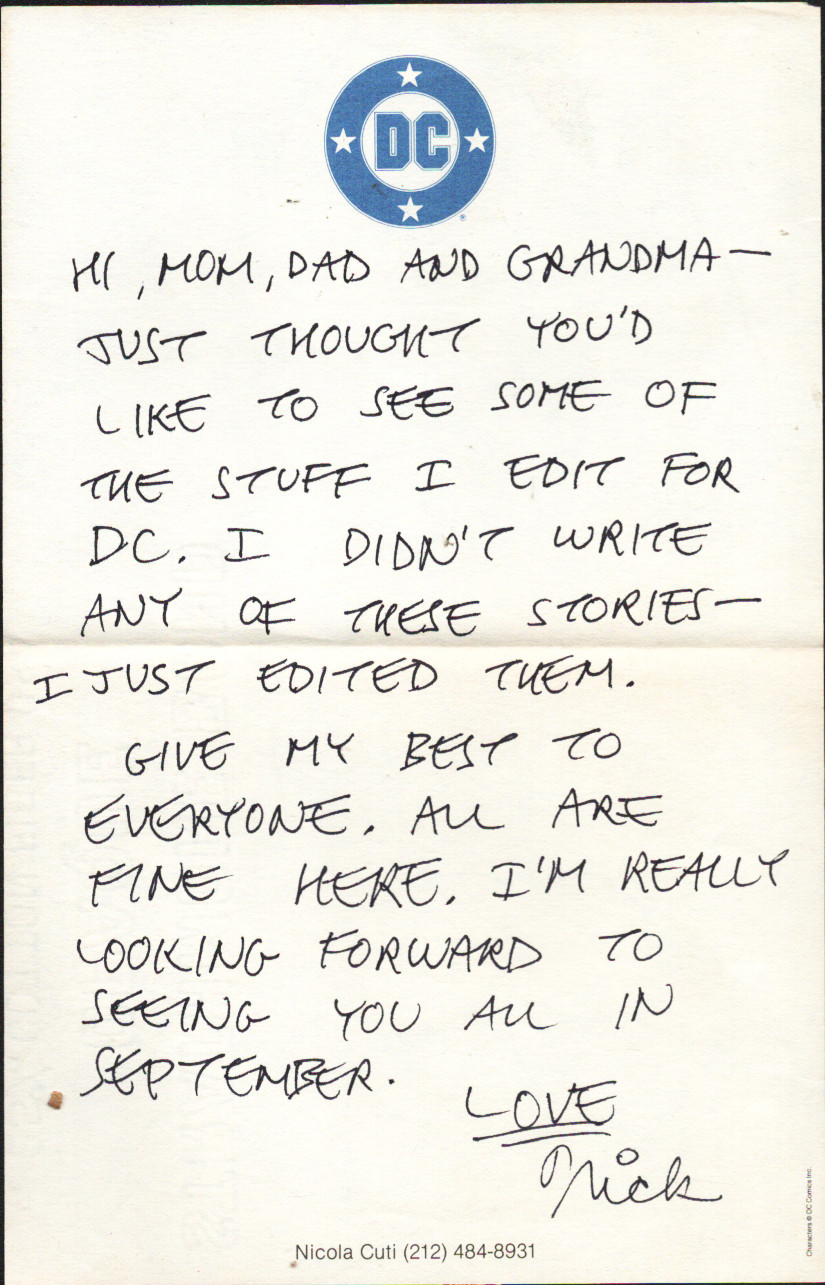 DC
®
HI, MOM, DAD AND GRANDMA—
JUST THOUGHT YOU'D
LIKE TO SEE SOME OF
THE STUFF I EDIT FOR
DC. I DIDN'T WRITE
ANY OF THESE STORIES—
I JUST EDITED THEM.
GIVE MY BEST TO
EVERYONE. ALL ARE
FINE HERE. I'M REALLY
LOOKING FORWARD TO
SEEING YOU ALL IN
SEPTEMBER.
LOVE
Nick
Nicola Cuti (212) 484-8931
Characters © DC Comics Inc.